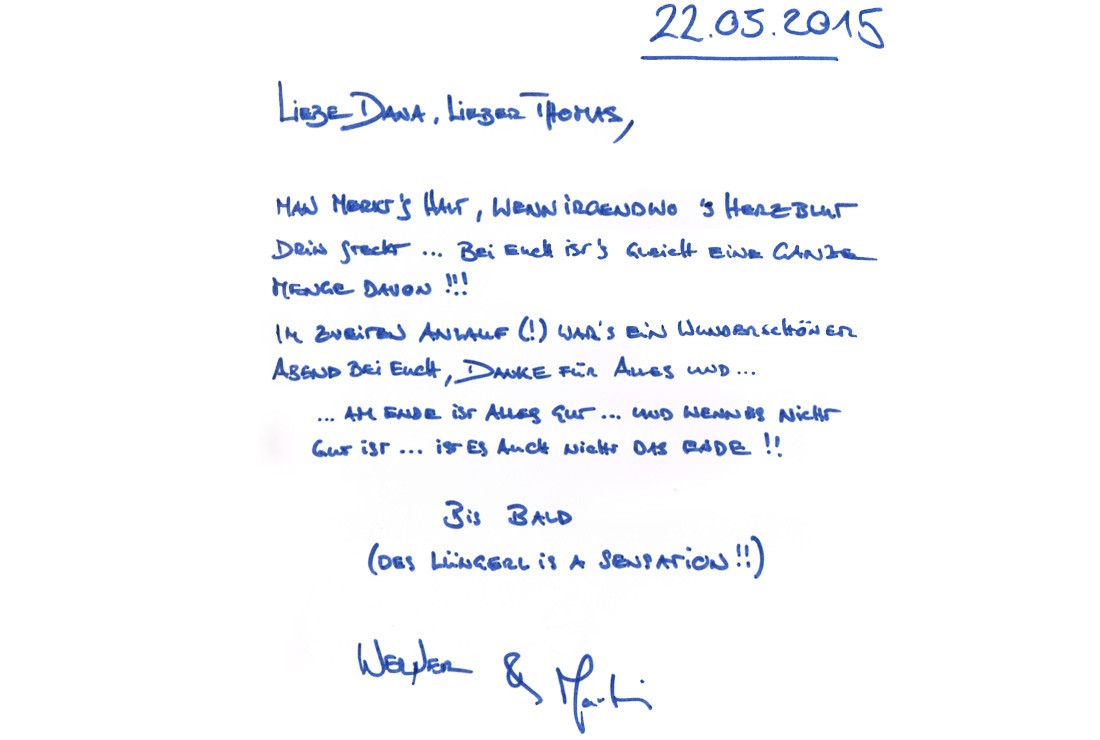 22.05.2015
Liebe Dana, Lieber Thomas,
Man merkt's halt, wenn irgendwo 's Herzblut
drin steckt ... Bei Euch ist's gleich eine ganze
Menge davon !!!
Im zweiten Anlauf (!) war's ein wunderschöner
Abend bei Euch, Danke für Alles und ...
... am Ende ist alles gut ... und wenn es nicht
gut ist ... ist es auch nicht das Ende !!
Bis bald
(Des Lüngerl is a Sensation !!)
Werner & Martin